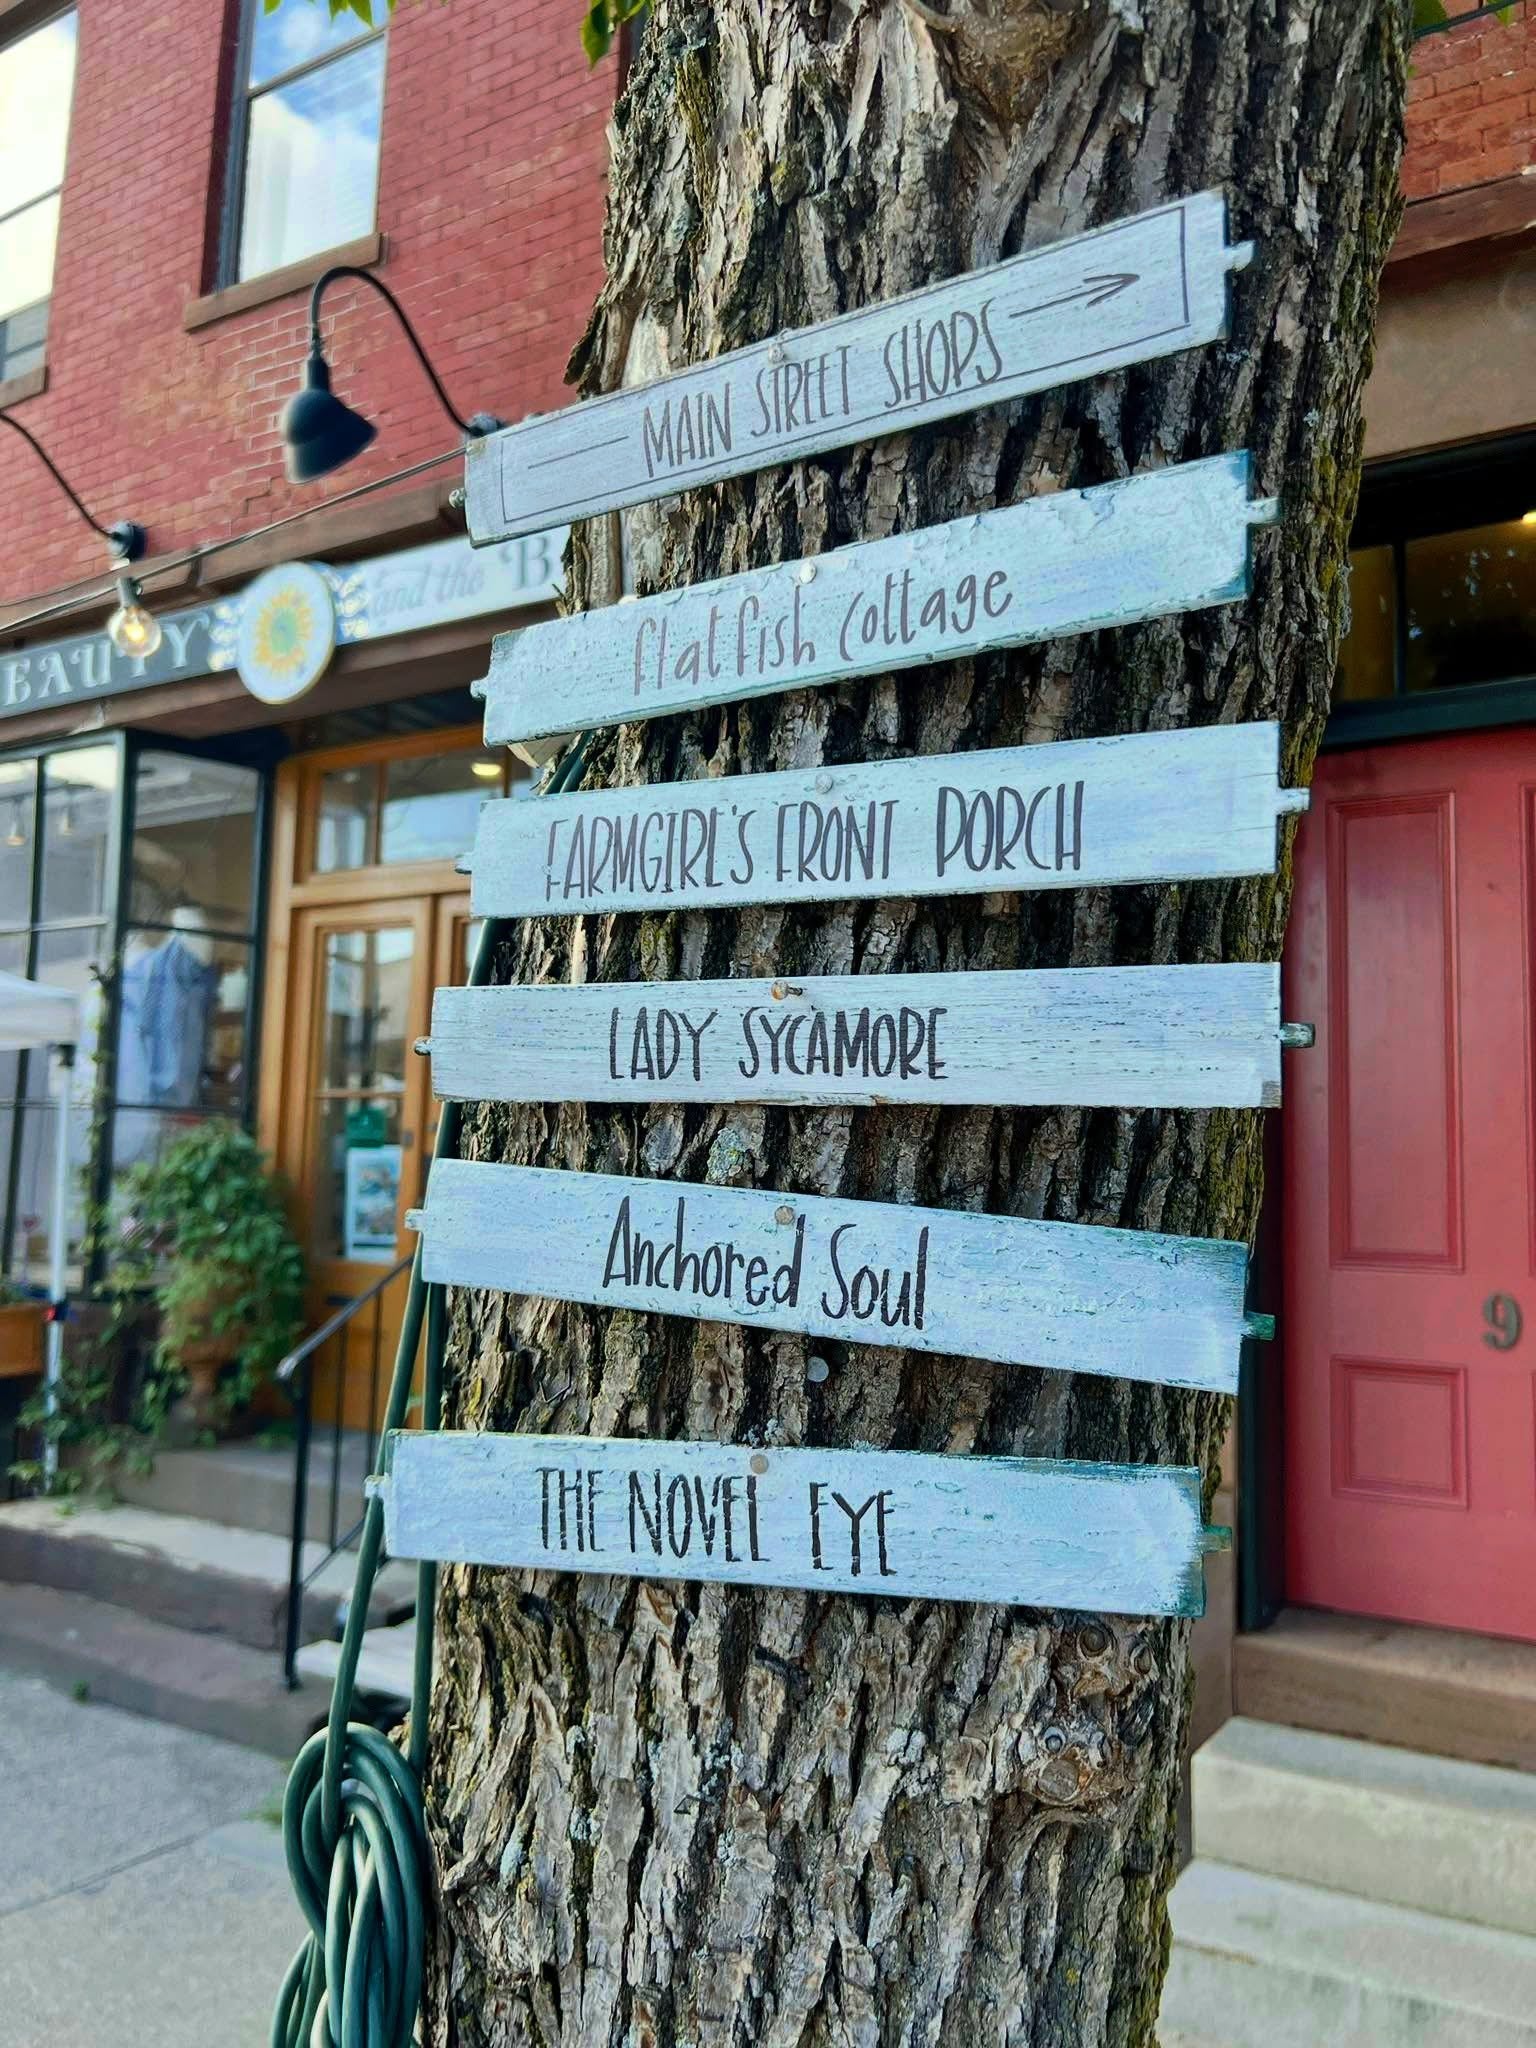 MAIN STREET SHOPS
flatfish cottage
FARMGIRL'S FRONT PORCH
LADY SYCAMORE
Anchored Soul
THE NOVEL EYE
BEAUTY
and the
9